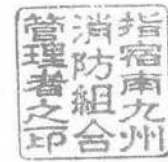 指宿南九州
消防組合
管理者之印